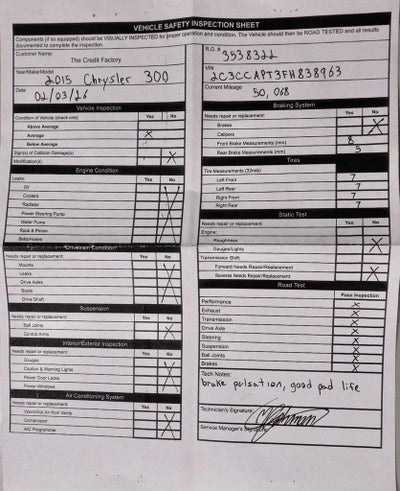 VEHICLE SAFETY INSPECTION SHEET
Components (if so equipped) should be VISUALLY INSPECTED for proper operation and condition. The Vehicle should then be ROAD TESTED and all results
documented to complete the inspection.
Customer Name:
The Credit Factory
Year/Make/Model
2015 Chrysler 300
Date
02/03/26
Vehicle Inspection
Condition of Vehicle (check one) Yes No
Above Average
Average X
Below Average
Sign(s) of Collision Damage(s) X
Modification(s)
Engine Condition
Leaks: Yes No
Oil
Coolant
Radiator
Power Steering Pump
Water Pump
Rack & Pinion
Belts/Hoses
Drivetrain Condition
Needs repair or replacement: Yes No
Mounts
Leaks
Drive Axles
Boots
Drive Shaft
Suspension
Needs repair or replacement: Yes No
Ball Joints
Control Arms
Interior/Exterior Inspection
Needs repair or replacement: Yes No
Gauges
Caution & Warning Lights
Power Door Locks
Power Windows
Air Conditioning System
Needs repair or replacement: Yes No
Compressor
A/C Programmer
R.O. #
3538322
VIN
2C3CCAPT3FH838963
Current Mileage
50,068
Braking System
Needs repair or replacement: Yes No
Brakes
Calipers
Front Brake Measurements (mm) 8
Rear Brake Measurements (mm) 5
Tires
Tire Measurements (32nds)
Left Front 7
Left Rear 7
Right Front 7
Right Rear 7
Static Test
Needs repair or replacement: Yes No
Engine:
Roughness
Gauges/Lights
Transmission Shift:
Forward Needs Repair/Replacement
Reverse Needs Repair/Replacement
Road Test
Pass Inspection
Performance X
Exhaust X
Transmission X
Drive Axle X
Steering X
Suspension X
Ball Joints X
Brakes X
Tech Notes:
brake pulsation, good pad life
Technician's Signature
Service Manager's Signature